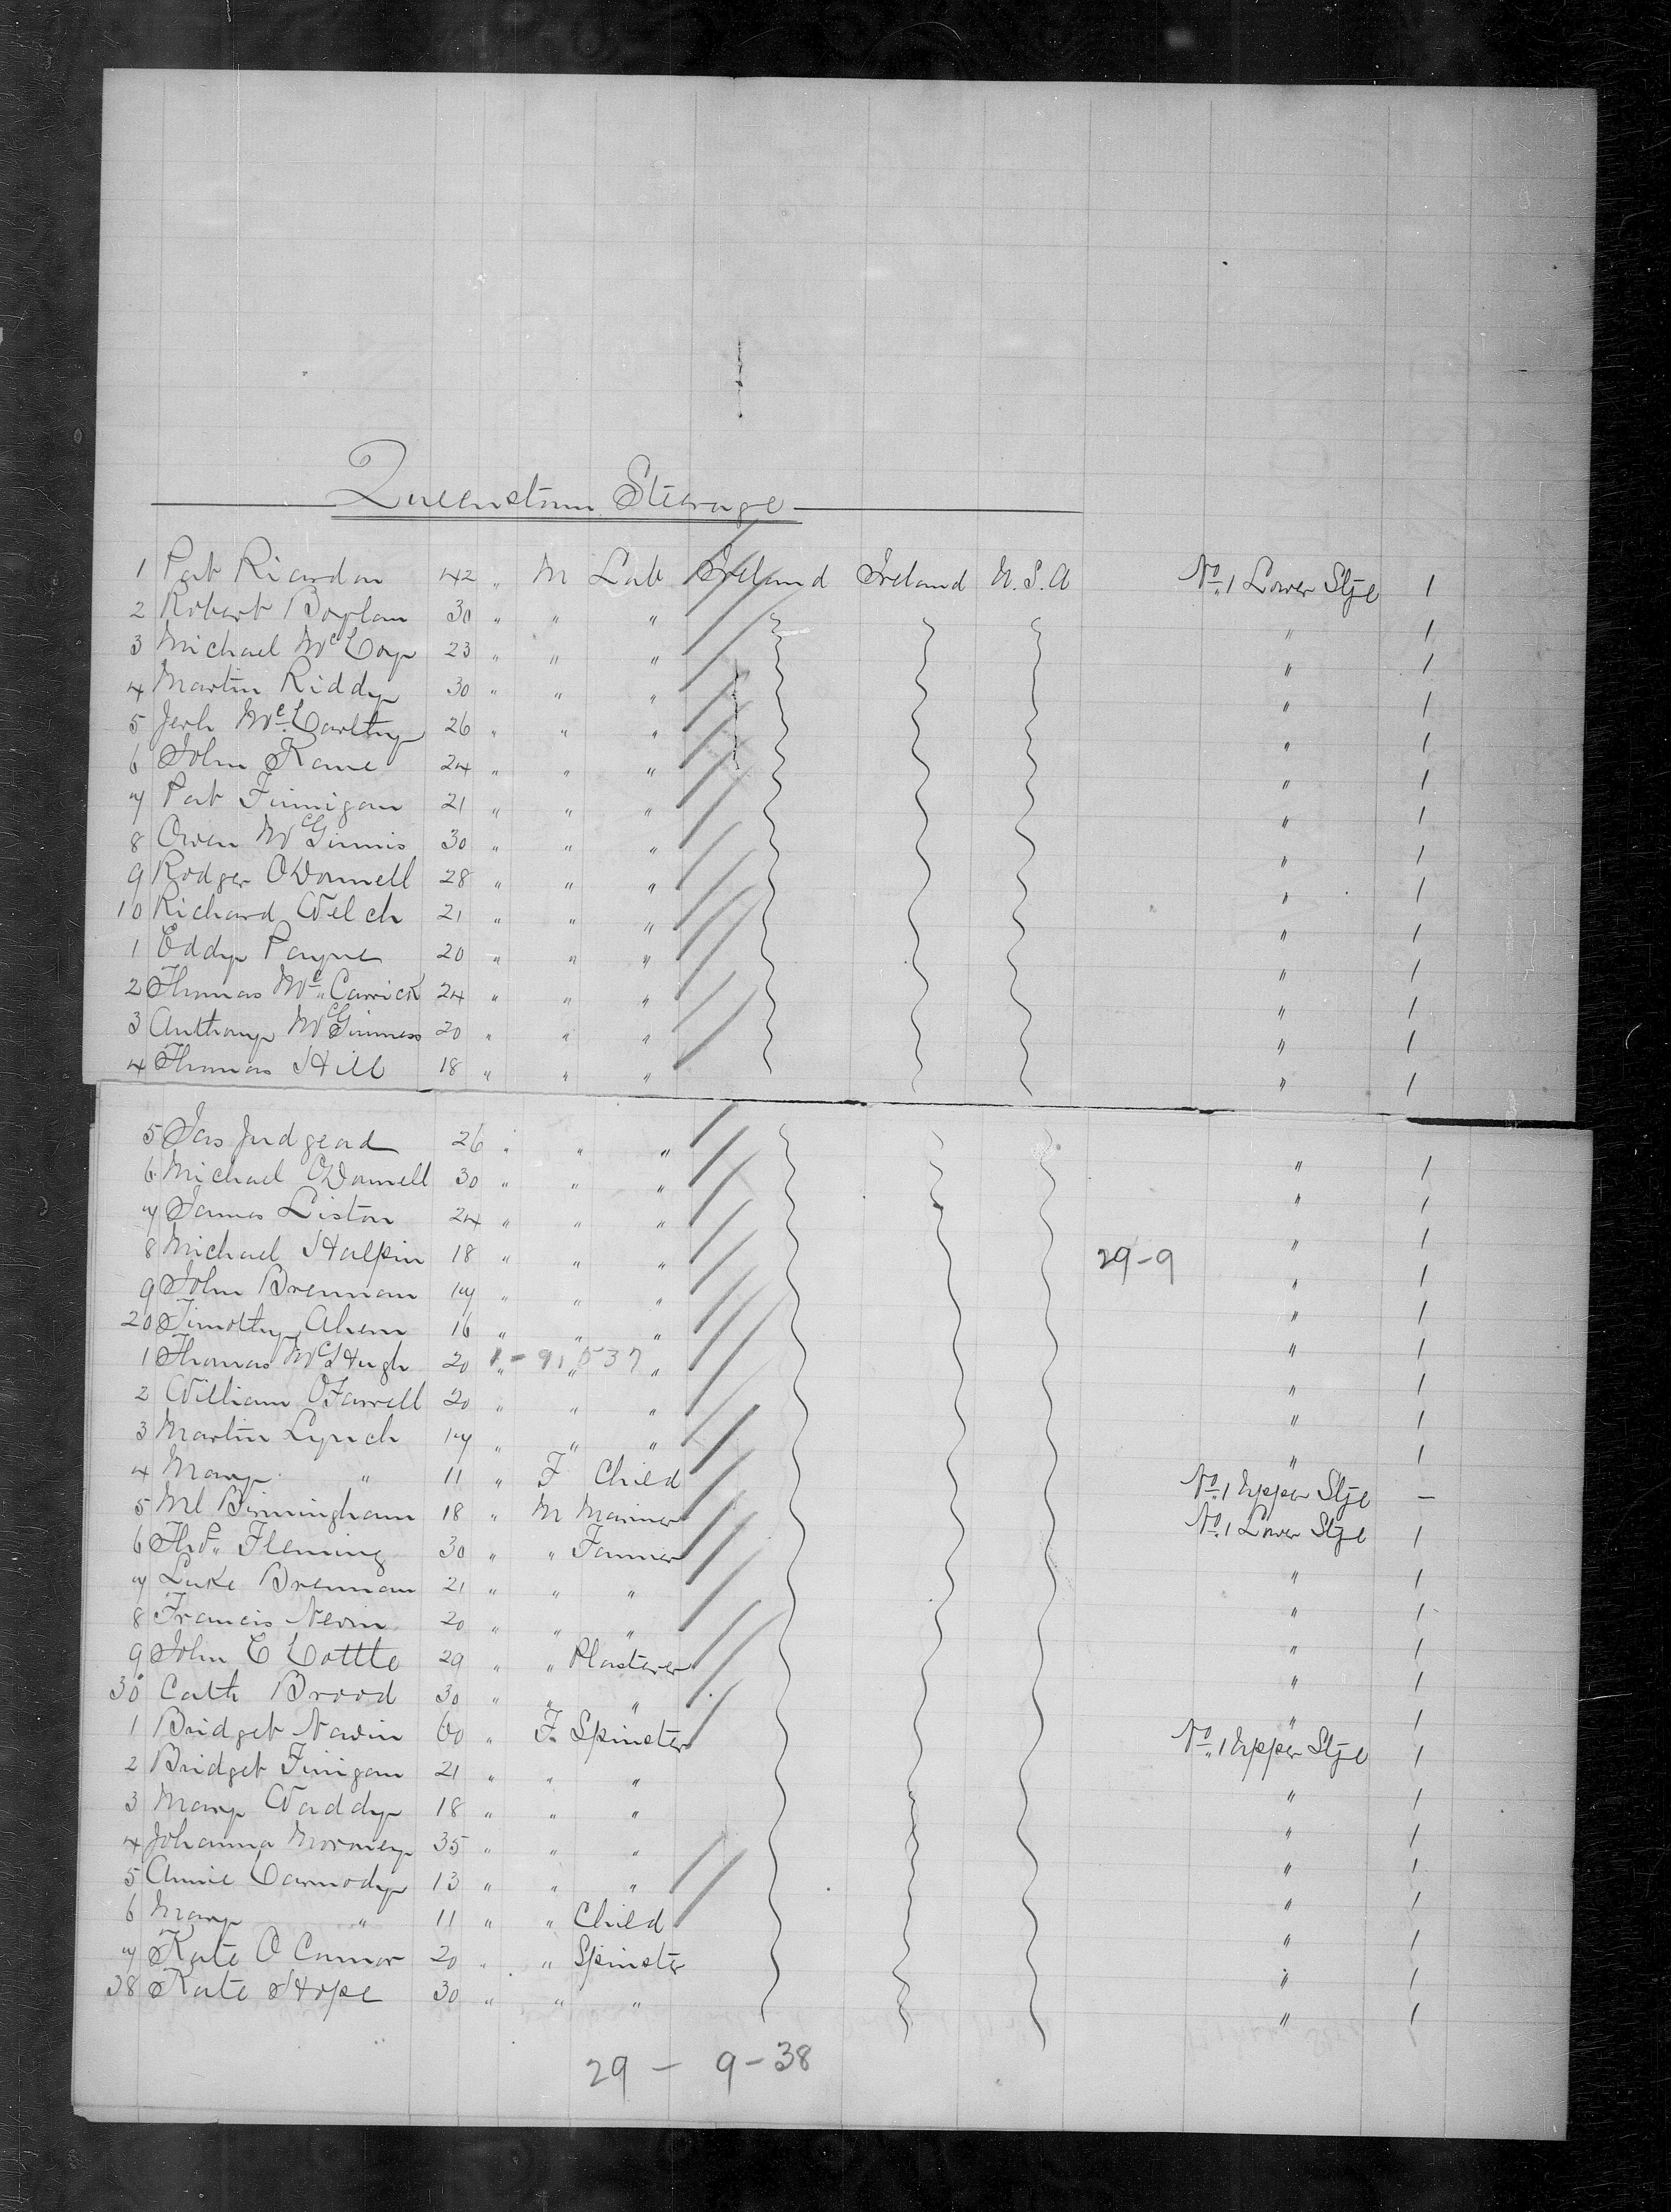 Queenstown Steerage
1 Pat Riordan 42 " M Lab Ireland Ireland U.S.A No. 1 Lower Stge 1
2 Robert Boylan 30 " " " " 1
3 Michael McCoy 23 " " " " 1
4 Martin Riddy 30 " " " " 1
5 Jerh McCarthy 26 " " " " 1
6 John Kane 24 " " " " 1
7 Pat Finnigan 21 " " " " 1
8 Owen McGinnis 30 " " " " 1
9 Rodger ODonnell 28 " " " " 1
10 Richard Welch 21 " " " " 1
1 Eddy Payne 20 " " " " 1
2 Thomas Mc Carrick 24 " " " " 1
3 Anthony McGinness 20 " " " " 1
4 Thomas Hill 18 " " " " 1
5 Jas Judgead 26 " " " " 1
6 Michael ODonnell 30 " " " " 1
7 James Liston 24 " " " " 1
8 Michael Halpin 18 " " " 29-9 " 1
9 John Brennan 17 " " " " 1
20 Timothy Ahern 16 " " " " 1
1 Thomas McHugh 20 1-91537 " " " " 1
2 William OFarrell 20 " " " " 1
3 Martin Lynch 17 " " " " 1
4 Mary " 11 " F Child No. 1 Upper Stge —
5 Ml Birmingham 18 " M Mariner No. 1 Lower Stge 1
6 Thos. Fleming 30 " " Farmer " 1
7 Luke Brennan 21 " " " " 1
8 Francis Nevin 20 " " " " 1
9 John C Cottle 29 " " Plasterer " 1
30 Cath Brood 30 " " " " 1
1 Bridget Navin 60 " F. Spinster No. 1 Upper Stge 1
2 Bridget Finigan 21 " " " " 1
3 Mary Waddy 18 " " " " 1
4 Johanna 35 " " " " 1
5 Annie Carmody 13 " " " " 1
6 Mary " 11 " " Child " 1
7 Kate O Connor 20 " " Spinster " 1
38 Kate Hope 30 " " " " 1
29 - 9-38